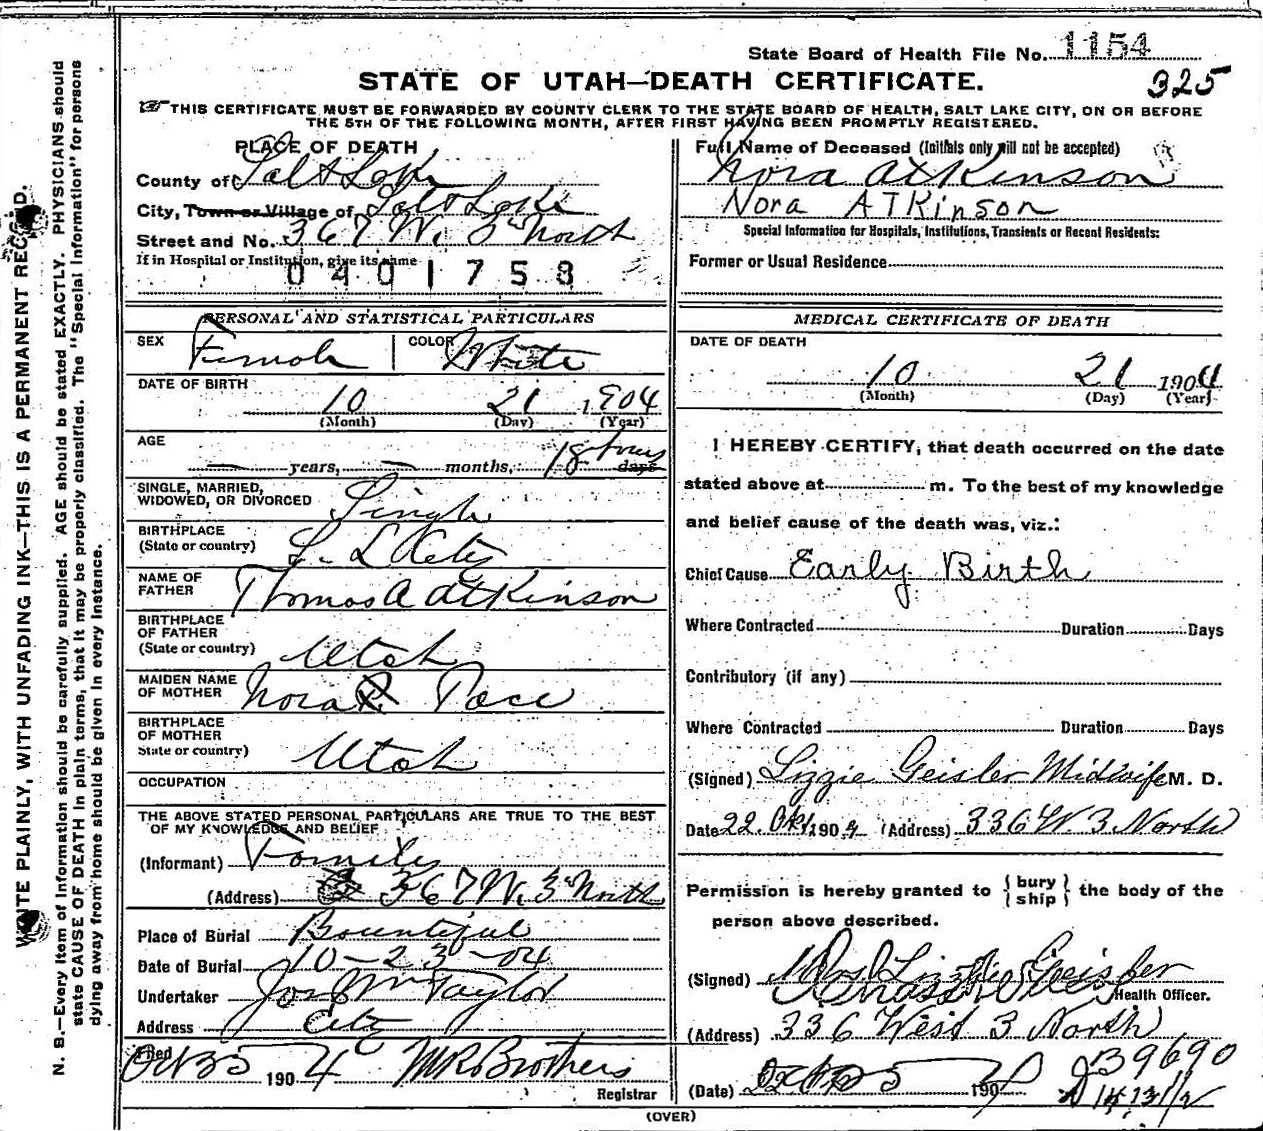 WRITE PLAINLY, WITH UNFADING INK—THIS IS A PERMANENT RECORD.
N. B.—Every item of information should be carefully supplied. AGE should be stated EXACTLY. PHYSICIANS should
state CAUSE OF DEATH in plain terms, that it may be properly classified. The "Special Information" for persons
dying away from home should be given in every instance.
State Board of Health File No. 1154
STATE OF UTAH—DEATH CERTIFICATE. 325
THIS CERTIFICATE MUST BE FORWARDED BY COUNTY CLERK TO THE STATE BOARD OF HEALTH, SALT LAKE CITY, ON OR BEFORE
THE 5TH OF THE FOLLOWING MONTH, AFTER FIRST HAVING BEEN PROMPTLY REGISTERED.
PLACE OF DEATH
County of Salt Lake
City, Town or Village of Salt Lake
Street and No. 367 W. 3 North
If in Hospital or Institution, give its name
0401758
Full Name of Deceased (Initials only will not be accepted)
Nora Atkinson
Nora ATKinson
Special Information for Hospitals, Institutions, Transients or Recent Residents:
Former or Usual Residence
PERSONAL AND STATISTICAL PARTICULARS
SEX Female COLOR White
DATE OF BIRTH
10 21 1904
(Month) (Day) (Year)
AGE
— years, — months, 18 hours days
SINGLE, MARRIED,
WIDOWED, OR DIVORCED Single
BIRTHPLACE
(State or country) S. L City
NAME OF
FATHER Thomas A Atkinson
BIRTHPLACE
OF FATHER
(State or country) Utah
MAIDEN NAME
OF MOTHER Nora Pace
BIRTHPLACE
OF MOTHER
State or country) Utah
OCCUPATION
THE ABOVE STATED PERSONAL PARTICULARS ARE TRUE TO THE BEST
OF MY KNOWLEDGE AND BELIEF
(Informant) Family
(Address) 367 W. 3 North
Place of Burial Bountiful
Date of Burial 10-23-04
Undertaker Jos Wm Taylor
Address City
Filed Oct 1904
Registrar
MEDICAL CERTIFICATE OF DEATH
DATE OF DEATH
10 21 1904
(Month) (Day) (Year)
I HEREBY CERTIFY, that death occurred on the date
stated above at m. To the best of my knowledge
and belief cause of the death was, viz.:
Chief Cause Early Birth
Where Contracted Duration Days
Contributory (if any)
Where Contracted Duration Days
(Signed) Lizzie Geisler Midwife M. D.
Date 22 Okt 1904 (Address) 336 W 3 North
Permission is hereby granted to { bury
ship } the body of the
person above described.
(Signed) Mrs Lizzie Geisler
Health Officer.
(Address) 336 West 3 North
(Date) 190
39690
(OVER)